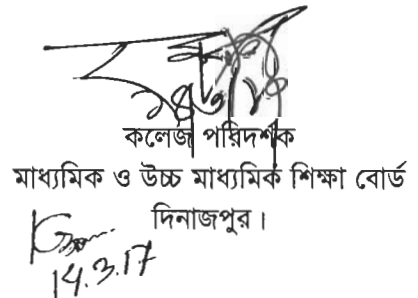 কলেজ পরিদর্শক
মাধ্যমিক ও উচ্চ মাধ্যমিক শিক্ষা বোর্ড
দিনাজপুর।
14.3.17